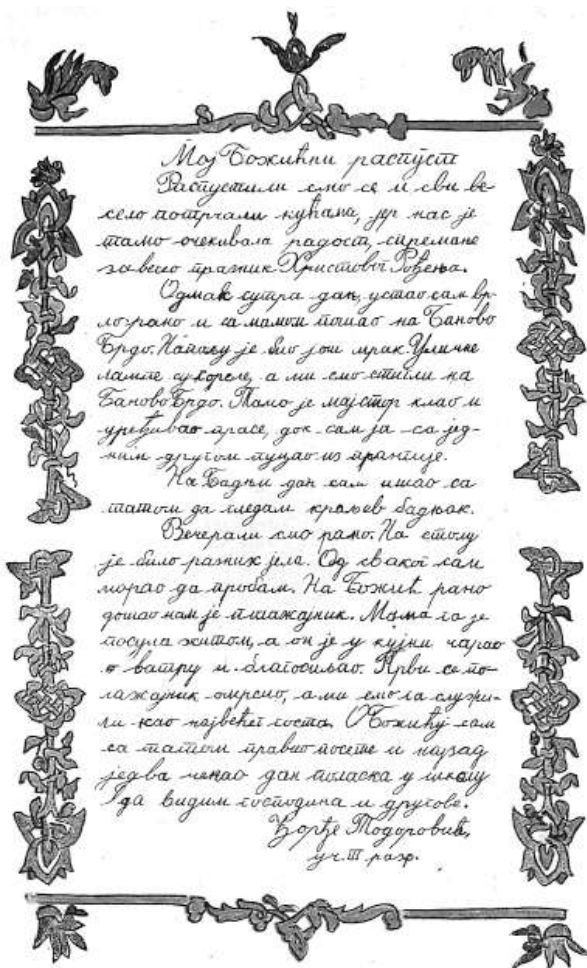 Мој Божићни распуст
Распустили смо се и сви ве-
село потрчали кућама, јер нас је
тамо очекивала радост, спремање
за весео празник Христовог Рођења.
Одмах сутра дан, устао сам вр-
ло рано и са мамом пошао на Баново
Брдо. Напољу је био још мрак. Уличне
лампе су гореле, а ми смо стигли на
Баново Брдо. Тамо је мајстор клао и
уређивао прасе, док сам ја са јед-
ним другом пуцао из прангије.
На Бадњи дан сам ишао са
татом да гледам краљев бадњак.
Вечерали смо рано. На столу
је било разних јела. Од сваког сам
морао да пробам. На Божић рано
дошао нам је полажајник. Мама га је
посула житом, а он је у кујни чарао
ватру и благосиљао. Први се по-
лажајник омрсио, а ми смо га служи-
ли као највећег госта. О Божићу сам
са татом правио посете и најзад
једва чекао дан поласка у школу
да видим господина и другове.
Ђорђе Тодоровић,
уч. III раз.